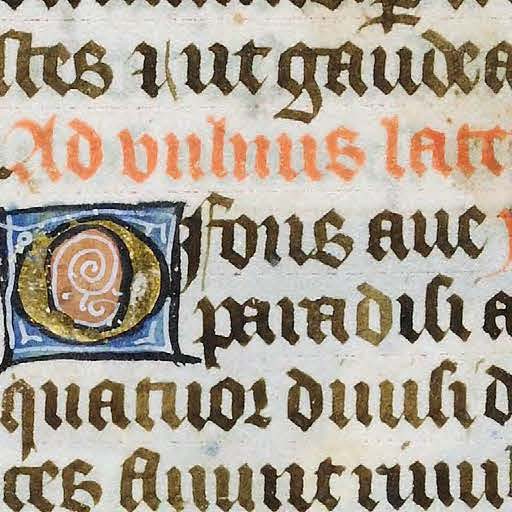 stes ⁊ ut gaudea
Ad vulnus late
O fons aue
paradisi a
quatuor diuisi d
tes fluunt riuul